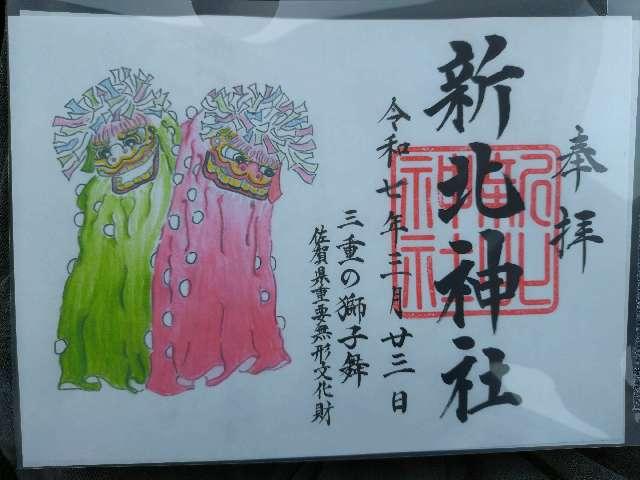 奉拝
新北神社
新北神社
令和七年三月廿三日
三重の獅子舞
佐賀県重要無形文化財